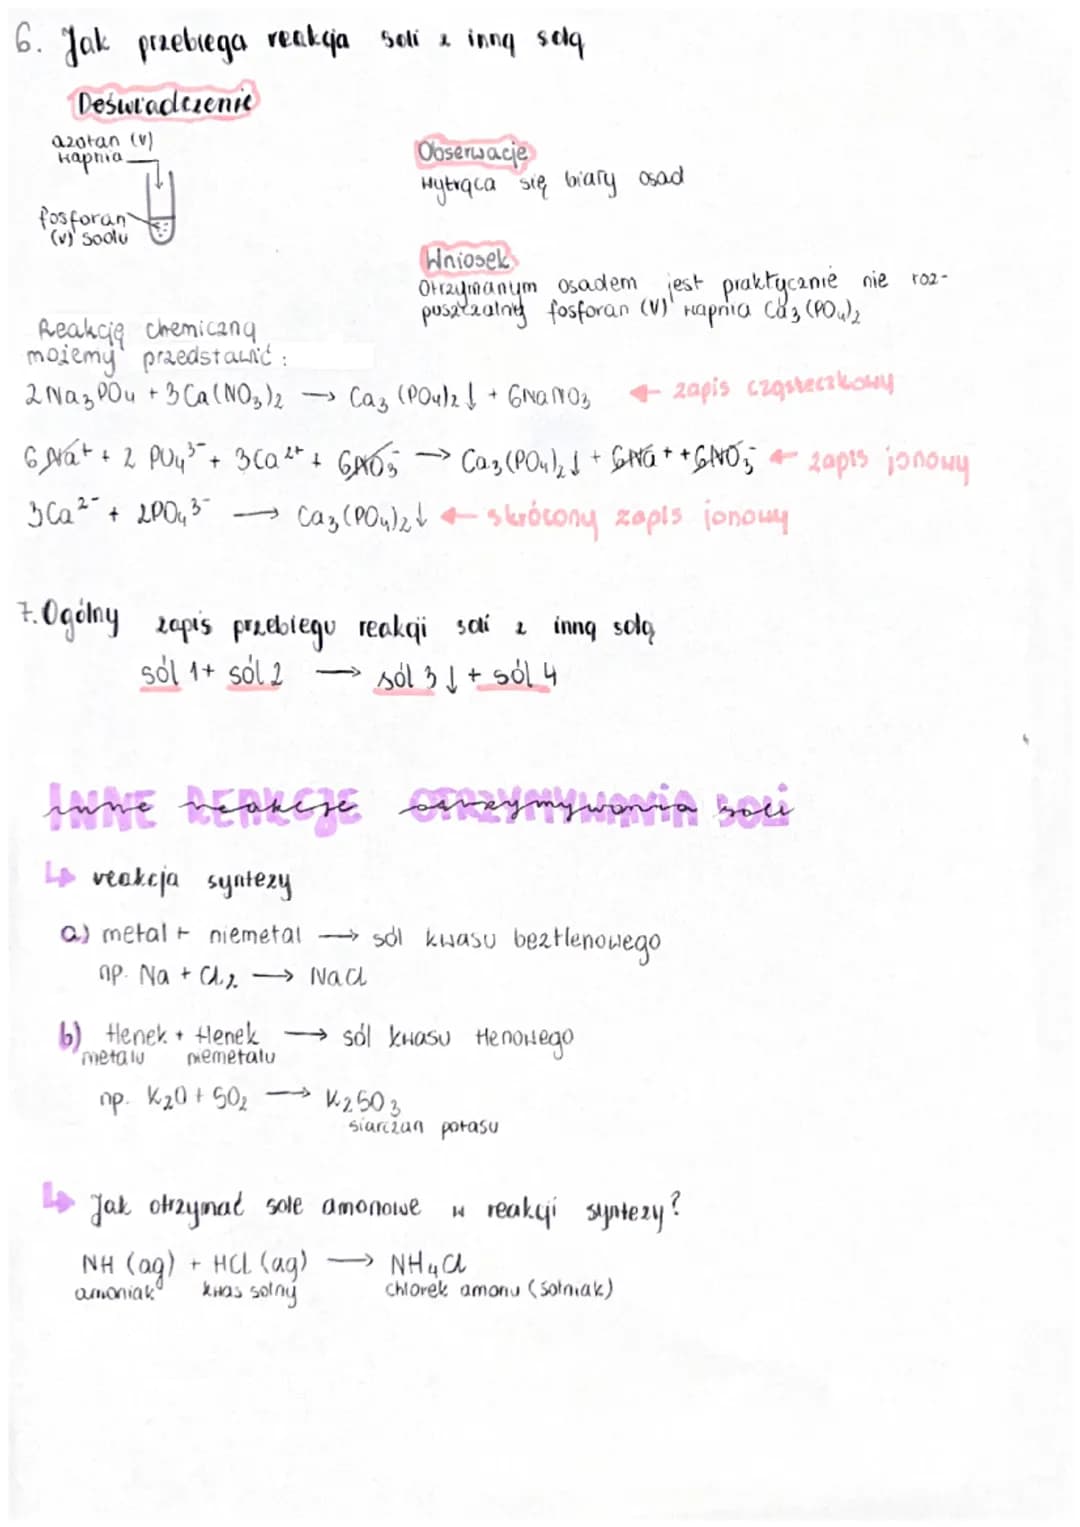 6. Jak przebiega reakcja soli z inną solą
Doświadczenie
azotan (V)
wapnia
fosforan
(V) sodu
Obserwacje
Wytrąca się biały osad
Wniosek
Otrzymanym osadem jest praktycznie nie roz-
puszczalny fosforan (V) wapnia Ca3(PO4)2
Reakcję chemiczną
możemy przedstawić:
2Na3PO4 + 3Ca(NO3)2 → Ca3(PO4)2↓ + 6NaNO3 ← zapis cząsteczkowy
6Na⁺ + 2PO4³⁻ + 3Ca²⁺ + 6NO3⁻ → Ca3(PO4)2↓ + 6Na⁺ + 6NO3⁻ ← zapis jonowy
3Ca²⁻ + 2PO4³⁻ → Ca3(PO4)2↓ ← skrócony zapis jonowy
7. Ogólny zapis przebiegu reakcji soli z inną solą
sól 1 + sól 2 → sól 3↓ + sól 4
INNE REAKCJE OTRZYMYWANIA SOLI
↳ reakcja syntezy
a) metal + niemetal → sól kwasu beztlenowego
np. Na + Cl2 → NaCl
b) tlenek + tlenek → sól kwasu tlenowego
metalu niemetalu
np. K2O + SO2 → K2SO3
siarczan potasu
↳ Jak otrzymać sole amonowe w reakcji syntezy?
NH (ag) + HCl (ag) → NH4Cl
amoniak kwas solny chlorek amonu (solniak)